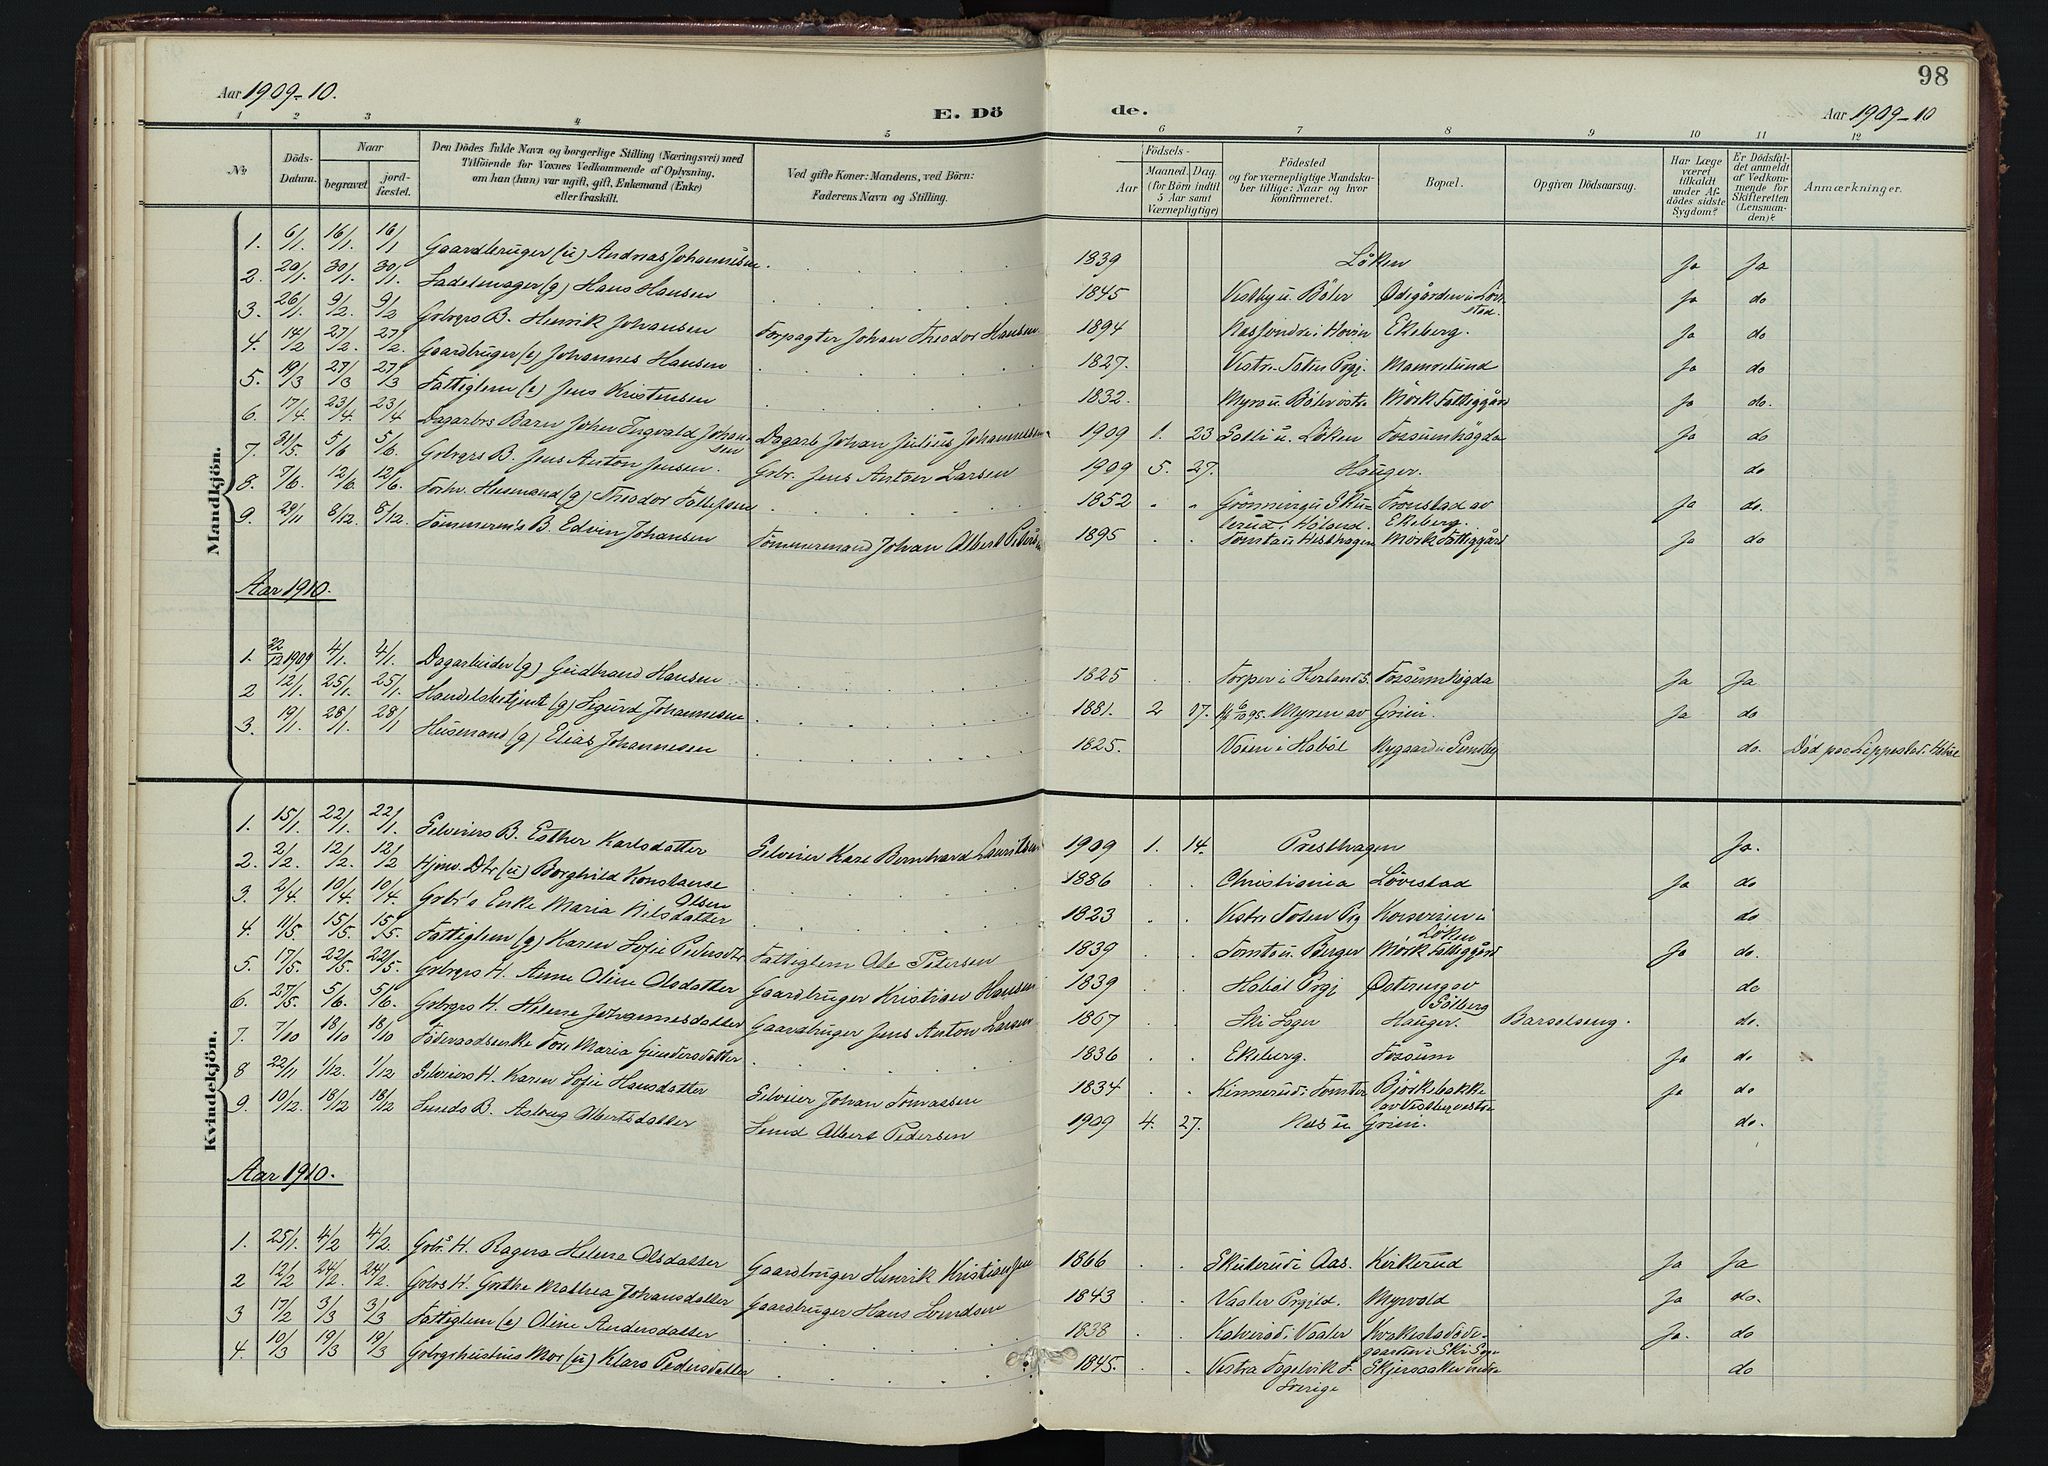 98
Aar 1909-10.
E. Dö de.
Aar 1909-10
1 2 3 4 5 6 7 8 9 10 11 12
No. Döds-Datum. Naar begravet. jordfæstet. Den Dödes fulde Navn og borgerlige Stilling (Næringsvei) med Tilföiende for Voxnes Vedkommende af Oplysning, om han (hun) var ugift, gift, Enkemand (Enke) eller fraskilt. Ved gifte Koner: Mandens, ved Börn: Faderens Navn og Stilling. Födsels- Aar Maaned. Dag. (for Börn indtil 5 Aar samt Værnepligtige) Födested og for værnepligtige Mandskaber tillige: Naar og hvor konfirmeret. Bopæl. Opgiven Dödsaarsag. Har Læge været tilkaldt under Afdödes sidste Sygdom? Er Dödsfaldet anmeldt af Vedkommende for Skifteretten (Lensmanden)? Anmærkninger.
Mandkjön.
1. 6/1 16/1. 16/1 Gaardbruger (u) Andreas Johannesen 1839 Löken Ja Ja
2. 20/1. 30/1. 30/1. Sadelmager (g) Hans Hansen 1845 Vestby u. Böler Ødegården u. Ja do
3. 26/1 9/2. 9/2 Grbrgrs B. Henrik Johansen Forpagter Johan Theodor Hansen 1894 i Hovin Ekeberg. Ja do
4. 14/2 27/2. 27/2. Gaardbruger (e) Johannes Hansen 1827. Vestre Toten Prgj. Mamrelund Ja do
5. 19/3 27/3 27/3 Fattiglem (e) Jens Kristensen 1832. Myra u. Böler vstre Mörk Fattiggård Ja do.
6. 17/4. 23/4 23/4 Dagarbrs Barn Johan Ingvald Johansen Dagarb. Johan Julius Johannesen 1909 1. 23 u. Löken Fossumhögda Ja do
7. 31/5. 5/6 5/6. Grbrgrs B. Jens Anton Jensen. Grbr. Jens Anton Larsen 1909 5. 27. Hauger. do
8. 7/6. 12/6. 12/6. Forhv. Husmand (g) Theodor Tollefsen 1852 Grönning u. Skulerud i Höland. Tronstad av Ekeberg. Ja do.
9. 29/11 8/12. 8/12. Tömmerm's B. Edvin Johansen Tömmermand Johan Albert 1895 Tomta u. Hesthagen Mörk Fattiggård Ja do
Aar 1910.
1. 22/12 1909 4/1. 4/1. Dagarbeider (g) Gudbrand Hansen 1825 Torper i Fossumhögda Ja Ja
2 12/1. 25/1. 25/1. Handelsbetjent (g) Sigurd Johannesen 1881. 2 17. 95. Myren av Grini. Ja do
3. 19/1. 28/1. 28/1 Husmand (g) Elias Johannesen 1825. i Hobol Nygaard u. do. Död paa Lippestad i
Kvindekjön.
1. 15/1. 22/1. 22/1. Selveiers B. Esther Karlsdatter Selveier Karl Bernhard Lauritsen 1909 1. 14. Presthagen Ja.
2. 2/2. 12/2. 12/2 Hjmv. Dtr (u) Borghild Konstanse Olsen 1886 Christiania Lövestad Ja do
3. 2/4. 10/4. 10/4. Grbr's Enke Maria Nilsdatter 1823 Vestre Toten Prg Korsveien u. Löken do
4. 11/5 15/5. 15/5. Fattiglem (g) Karen Sofie Pedersdtr Fattiglem Ole Petersen 1839 Tomta u. Berger Mörk Fattiggård Ja do.
5. 17/5. 22/5. 22/5. Grbrgrs H. Anne Oline Olsdatter Gaardbruger Kristian Hansen 1839 Hobol Prgj Østereng av Solberg do
6. 27/5. 5/6. 5/6. Grbrgrs H. Helene Johannesdatter Gaardbruger Jens Anton Larsen 1867 Ski Sogn Hauger. Barselseng. do.
7. 7/10 18/10 18/10 Föderaadsenke Maria Gundersdatter 1836 Ekeberg. Fossum Ja do
8 22/11 1/12. 1/12 Selveiers H. Karen Sofie Hansdatter Selveier Johan Tomassen 1834 Kinnerud i Tomter Björkebakke av Vestby vestre Ja do
9. 10/12. 18/12 18/12 Smeds B. Aslaug Albertsdatter Smed Albert Pedersen 1909 4. 27. Næs u. Grini. do.
Aar 1910.
1. 25/1. 4/2 4/2. Grbr. H. Ragna Helene Olsdatter Gaardbruger Henrik Kristiansen 1866 Skuterud i Aas. Kirkerud Ja Ja
2 12/2 24/2. 24/2. Grbrs H. Grethe Mathea Johansdatter Gaardbruger Hans Svendsen 1843 Vaaler Prgjld. Myrvold Ja do.
3 17/2 3/3 3/3 Fattiglem (e) Oline Andersdatter 1838 Kalverud i Vaaler i Ski Sogn Ja. do
4. 10/3 19/3 19/3 Grbrgshustrus Mor (u) Klara Pedersdatter 1845. Vestra Fogelvik Sverige do